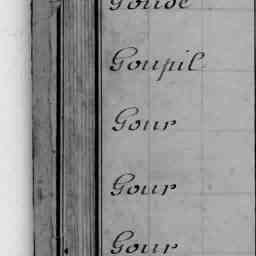 Goude
Goupil
Gour
Gour
Gour